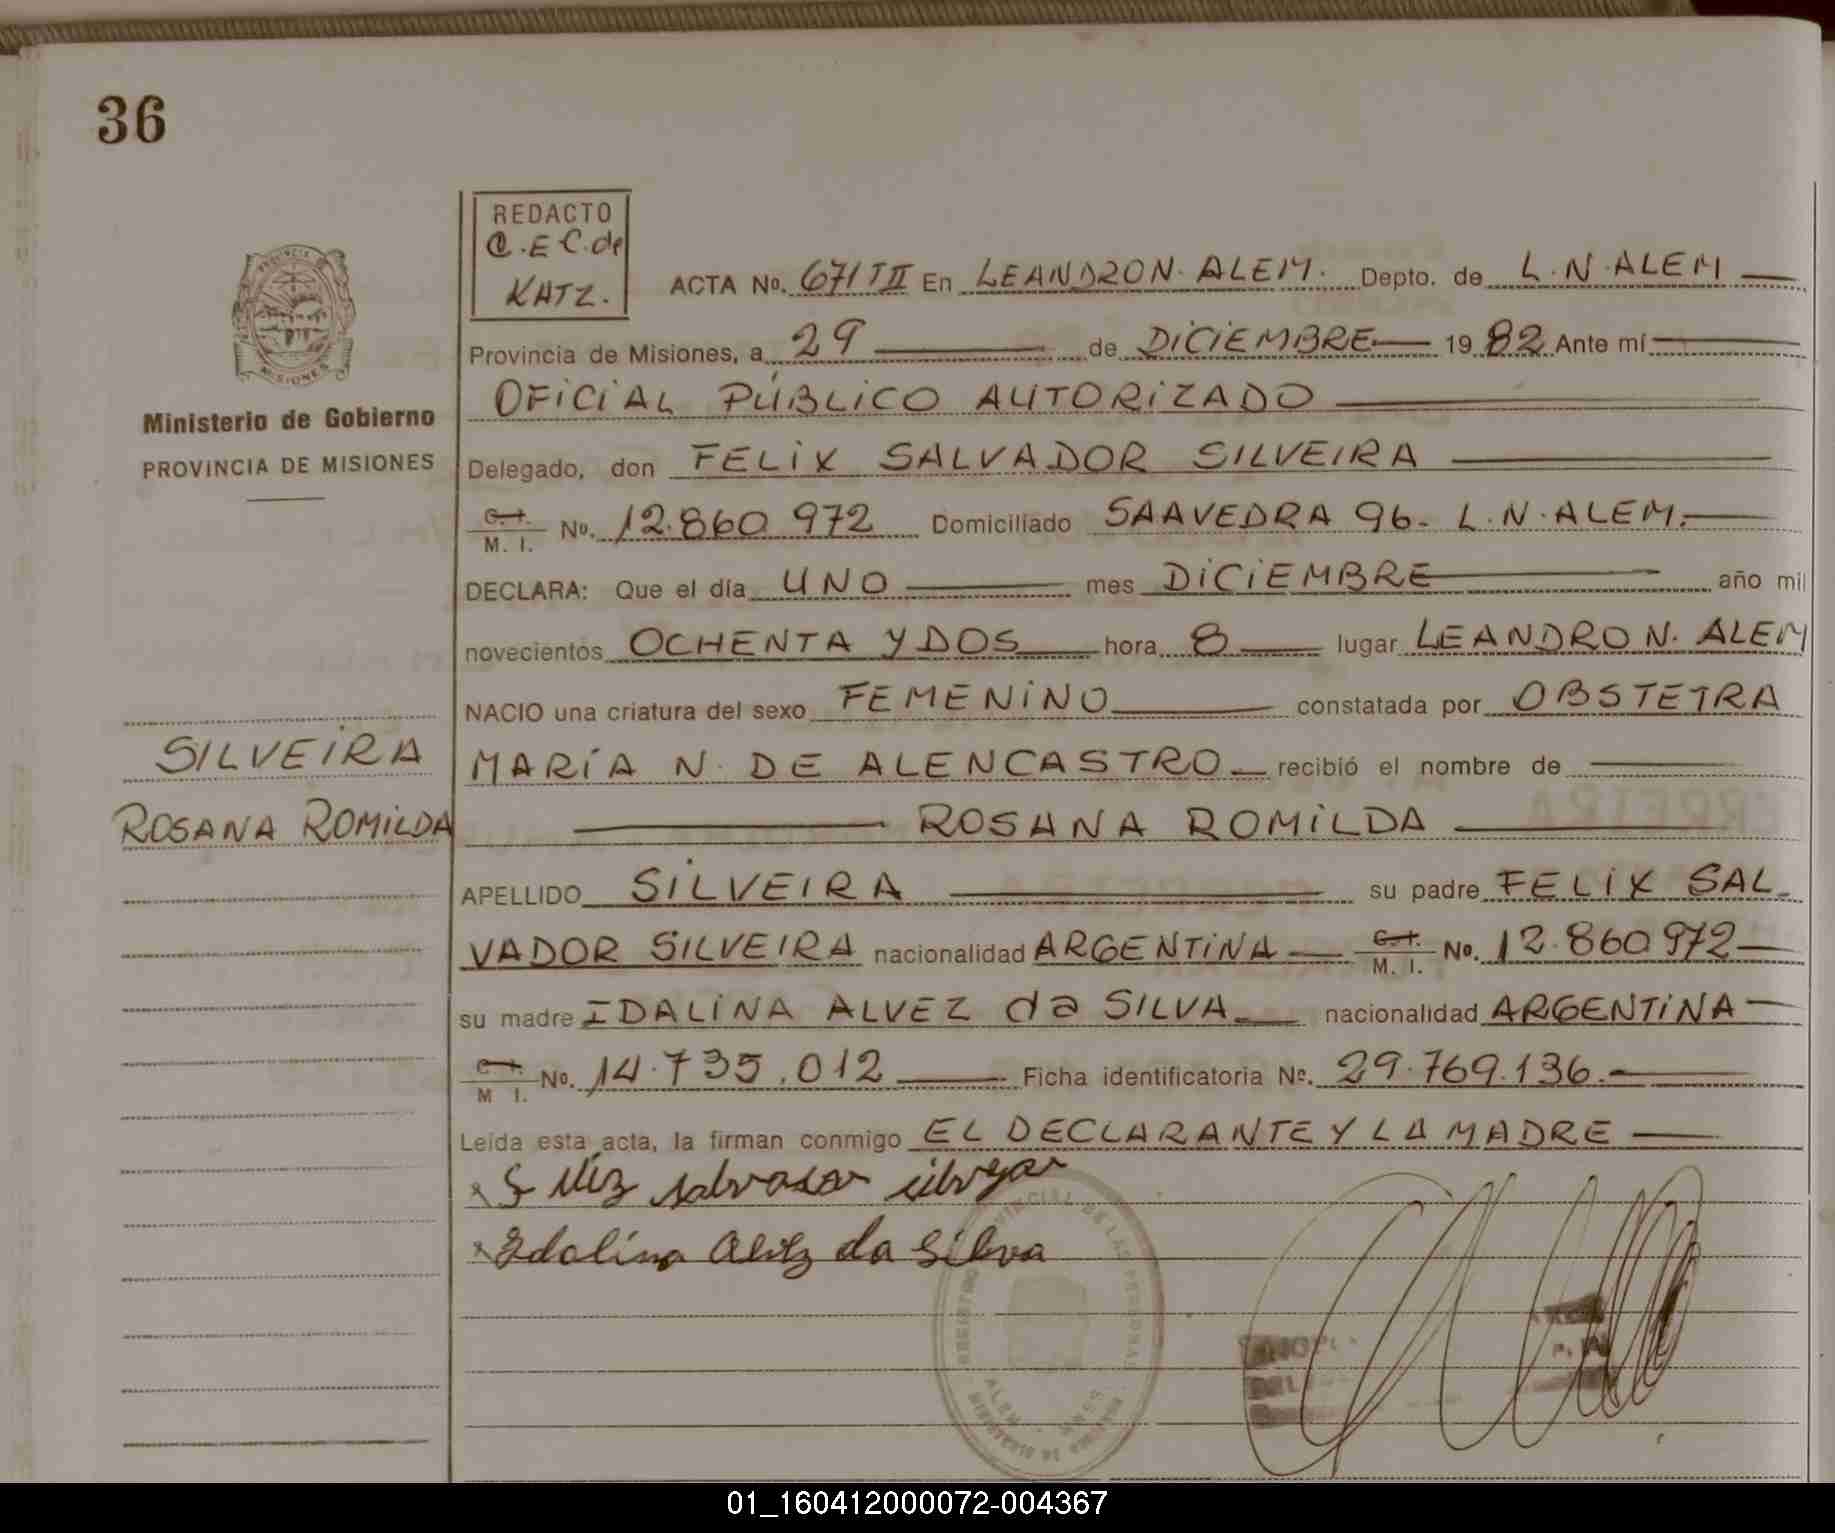 36
REDACTO
C.E C. de
KATZ.
PROVINCIA DE
MISIONES
Ministerio de Gobierno
PROVINCIA DE MISIONES
ACTA No. 671 T II En LEANDRO N. ALEM. Depto. de L. N. ALEM
Provincia de Misiones, a 29 de DICIEMBRE 19 82 Ante mí
OFICIAL PÚBLICO AUTORIZADO
Delegado, don FELIX SALVADOR SILVEIRA
C. I. M. I. No. 12.860.972 Domiciliado SAAVEDRA 96. L. N. ALEM.
DECLARA: Que el día UNO mes DICIEMBRE año mil
novecientos OCHENTA Y DOS hora 8 lugar LEANDRO N. ALEM
NACIO una criatura del sexo FEMENINO constatada por OBSTETRA
MARÍA N. DE ALENCASTRO recibió el nombre de
ROSANA ROMILDA
SILVEIRA
ROSANA ROMILDA
APELLIDO SILVEIRA su padre FELIX SAL-
VADOR SILVEIRA nacionalidad ARGENTINA C. I. M. I. No. 12.860972
su madre IDALINA ALVEZ da SILVA nacionalidad ARGENTINA
C. I. M I. No. 14.735.012 Ficha identificatoria No. 29.769.136.
Leída esta acta, la firman conmigo EL DECLARANTE Y LA MADRE
salvador
Idalina Alvez da Silva
PROVINCIAL DE LAS PERSONAS
REGISTRO
ALEM - MNES
01_160412000072-004367